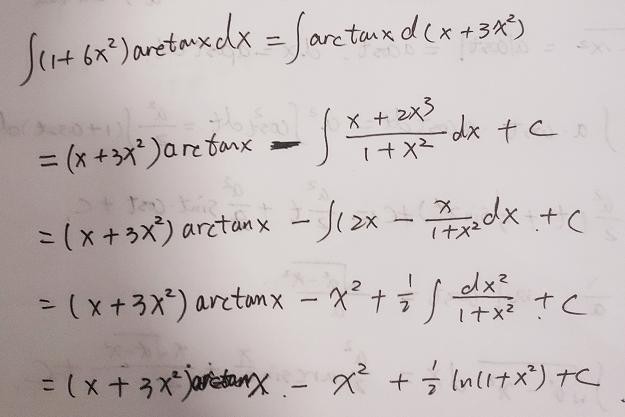 ∫(1+6x²)arctanxdx = ∫arctanxd(x+3x²)
= (x+3x²)arctanx - ∫ (x+2x³)/(1+x²) dx + C
= (x+3x²)arctanx - ∫(2x - x/(1+x²) dx + C
= (x+3x²)arctanx - x² + 1/2 ∫ dx²/(1+x²) + C
= (x+3x²)arctanx - x² + 1/2 ln(1+x²) + C